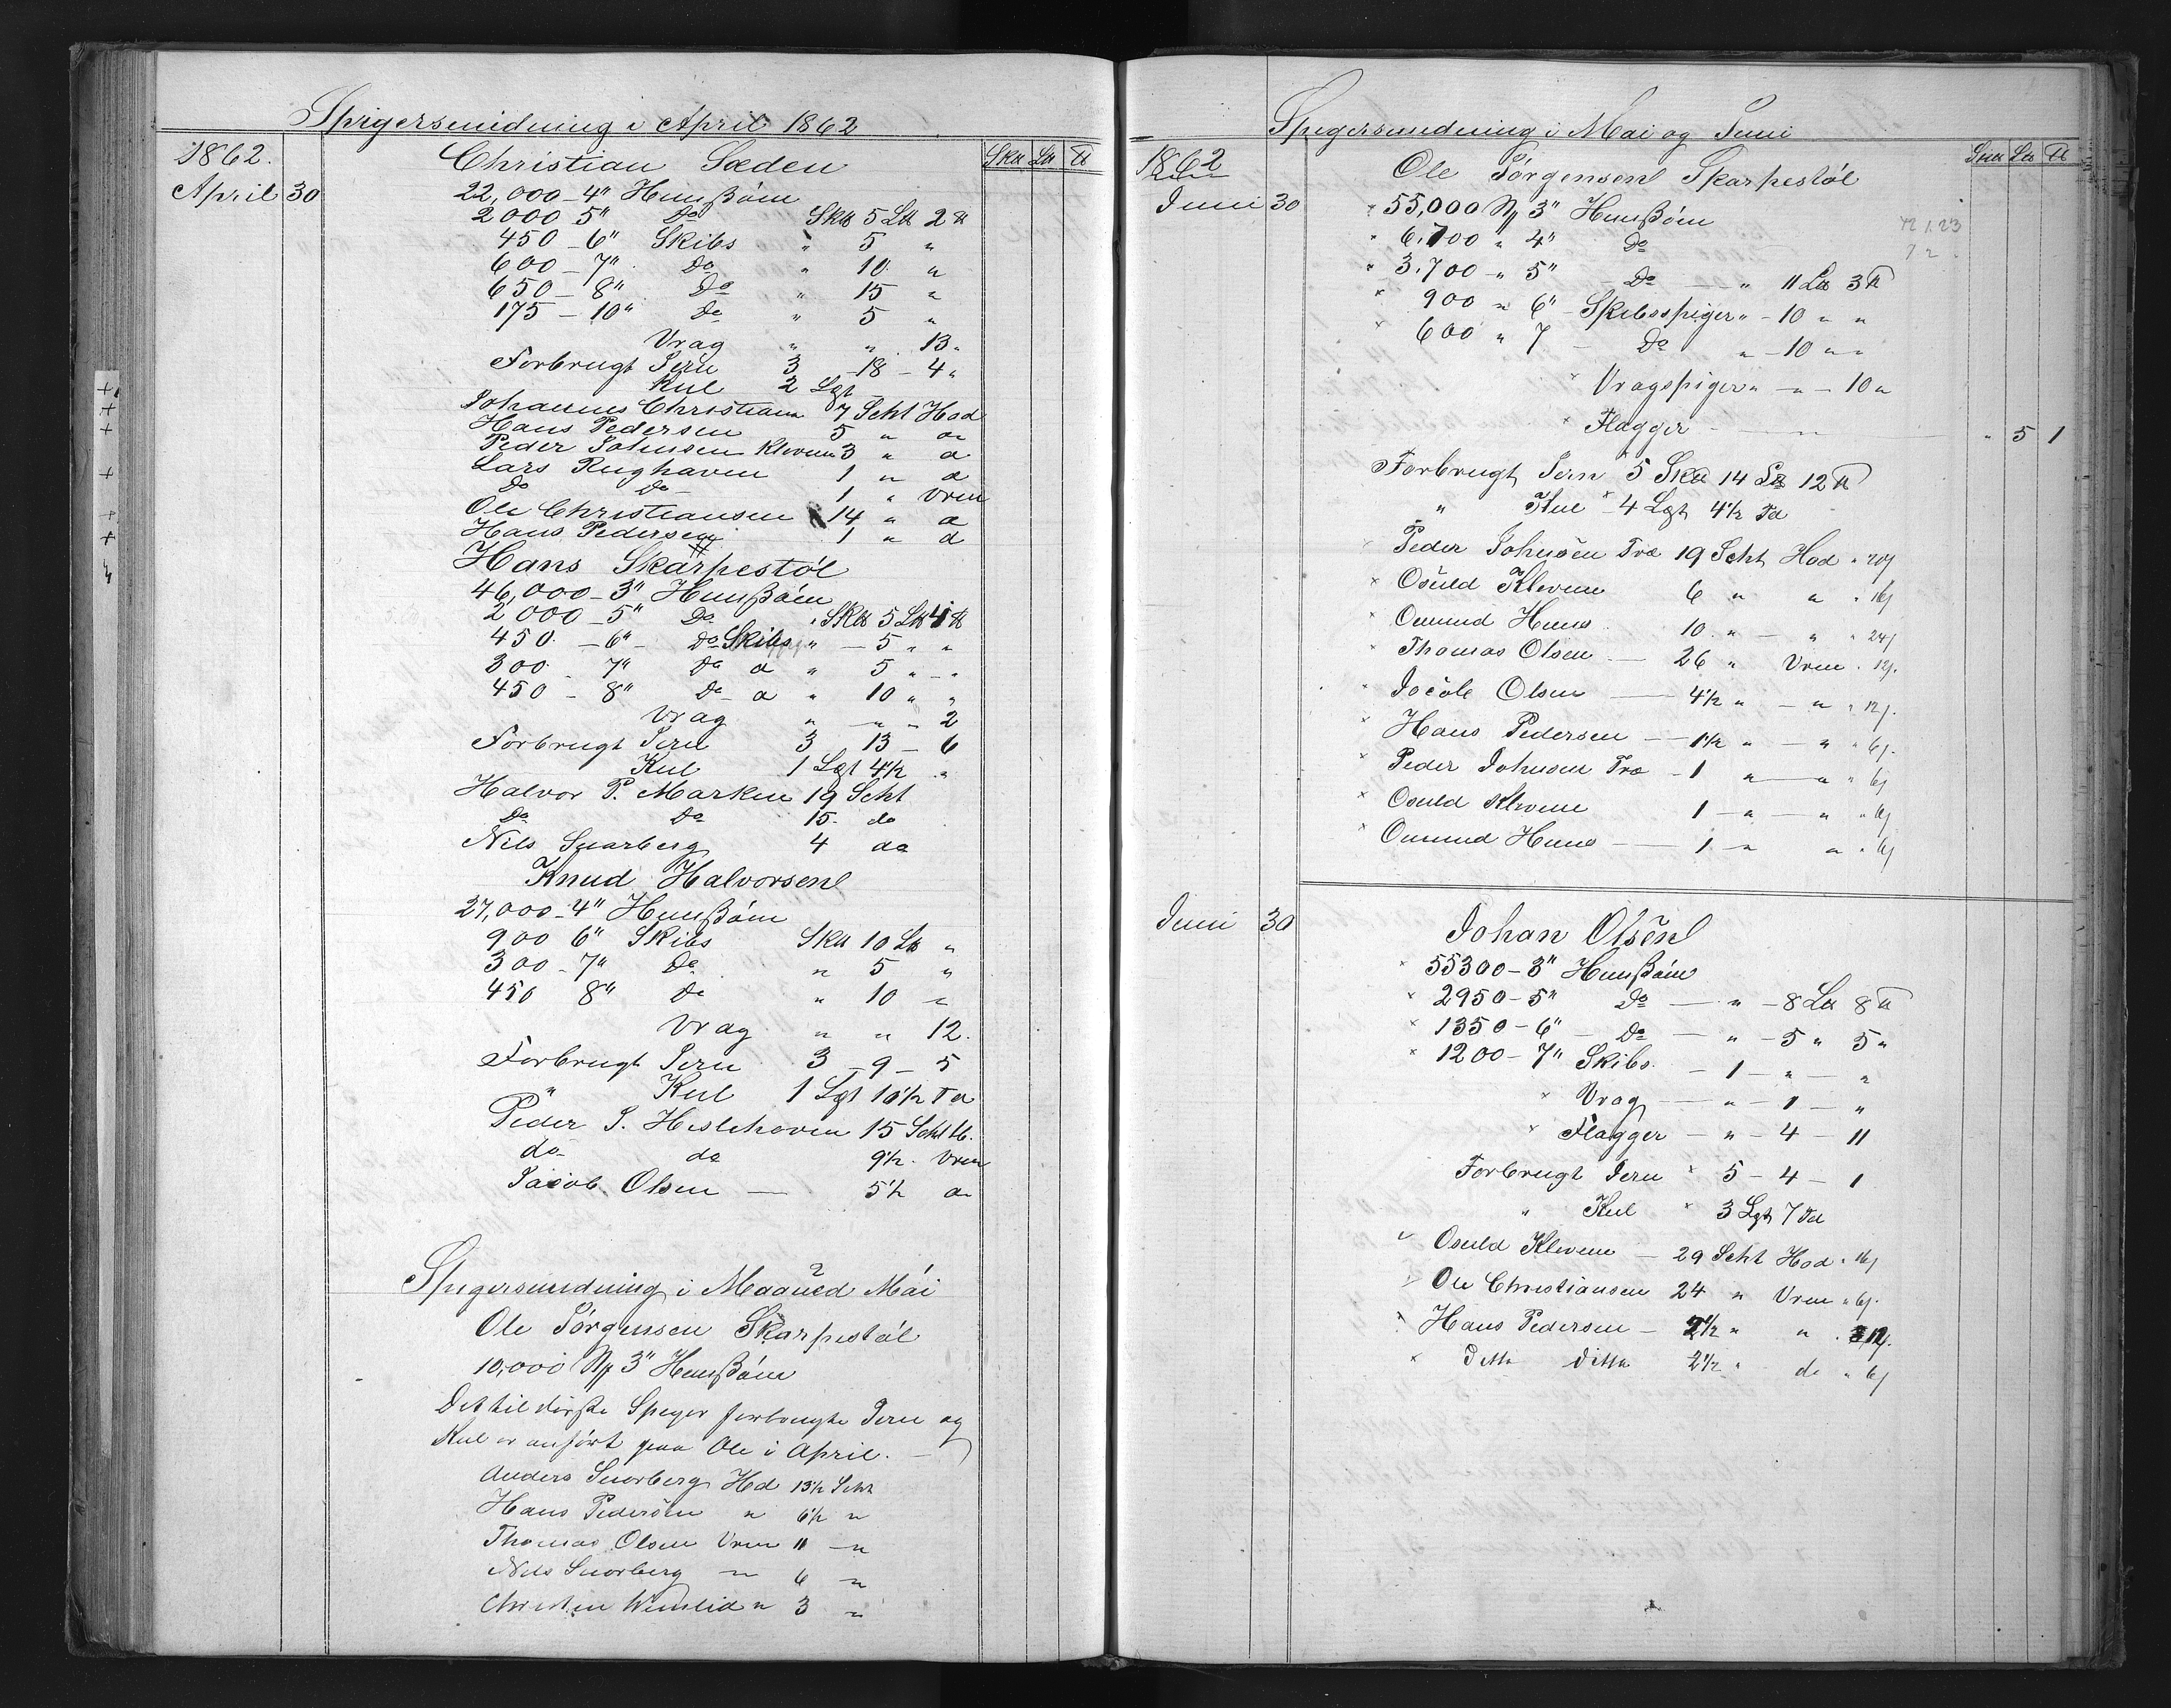 Spigersmidning i April 1862
1862. Christian Sæden Sk℔ L℔ ℔
April 30 22,000 - 4" Huusßöm
2000 5" Do Sk℔ 5 L℔ 2 ℔
450 - 6" Skibs " 5 "
600 - 7" Do " 10 "
650 - 8" Do " 15 "
175 - 10" Do " 5 "
Vrag " " 13 "
Forbrugt Jern 3 - 18 - 4 "
Kul 2 Lgt
Johannes Christians 7 Scht Hod
Hans Pedersen 5 " a
Peder Johnsen Kleven 3 " a
Lars Rughaven 1 " a
Do Do 1 " Vren
Ole Christiansen 14 " a
Hans Pedersen 1 " a
Hans Skarpestöl
46,000 - 3" Huusßöm
2000 - 5" Do " Sk℔ 5 L℔ 4 ℔
450 - 6" - Do Skibs " - 5 " "
300 - 7" Do a " 5 " - "
450 - 8" Do a " 10 " "
Vrag " - " - 2
Forbrugt Jern 3 13 - 6
Kul 1 Lgt 4½ "
Halvor P. Marken 19 Scht
Do Do 15 do
Nils Snarberg 4 do
Knud Halvorsen
27,000 - 4" Huusßöm
900 6" Skibs Sk℔ 10 L℔ "
300 - 7" Do " 5 "
450 8" Do " 10 "
Vrag " " 12.
Forbrugt Jern 3 - 9 - 5
" Kul 1 Lgt 10½ Td
Peder J. Heslehaven 15 Scht H.
do do 9½ Vren
Jacob Olsen — 5½ a
Spigersmidning i Maaned Mai
Ole Jörgensen Skarpestöl
10,000 N 3" Huusßöm
Det til disse Speger forbrugte Jern og
Kul er anfört paa Ole i April. —
Anders Snorberg Hod 13½ Scht
Hans Pedersen " 6½ "
Thomas Olsen Vren 11 - "
Nils Snorberg " 6 "
Christen Wemlid " 3 "
Spigersmidning i Mai og Juni
1862 Ole Jörgensen Skarpestöl Sk℔ L℔ ℔
Juni 30 × 55,000 N 3" Huusßöm
× 6,700 " 4" Do
× 3,700 - " 5" - Do — " 11 L℔ 3 ℔
× 900 " 6" Skibsspiger " - 10 " "
× 600 " 7 - Do " - 10 " "
× Vragspiger " - " - 10 "
× Flagger - " 5 1
Forbrugt Jern 5 Sk℔ 14 L℔ 12 ℔
" Kul × 4 Lgt 4½ Td
× Peder Johnsen Træ 19 Scht Hod "
× Osuld Kleven 6 " " "
× Omund Huus 10 " — " " 24
× Thomas Olsen — 26 " Vren " 12
× Jacob Olsen — 4½ " — " " 12
× Hans Pedersen — 1½ " — " " 6
× Peder Johnsen Træ - 1 " — " " 6
× Osuld Kleven 1 - " - " " 6
× Omund Huus — 1 - " " " 6
Juni 30 Johan Olsen
× 55300 - 3" Huusßöm
× 2950 - 5" Do — " - 8 L℔ 8 ℔
× 1350 - 6" - Do — " - 5 " 5 "
× 1200 - 7" Skibs - 1 - " — "
× Vrag — " - 1 - "
× Flagger — " - 4 - 11
Forbrugt Jern × 5 - 4 - 1
" Kul × 3 Lgt 7 Td
Osuld Kleven — 29 Scht Hod "
Ole Christiansen 24 " Vren " 6
× Hans Pedersen — "  "
× Ditto Ditto 2½ " do " 6